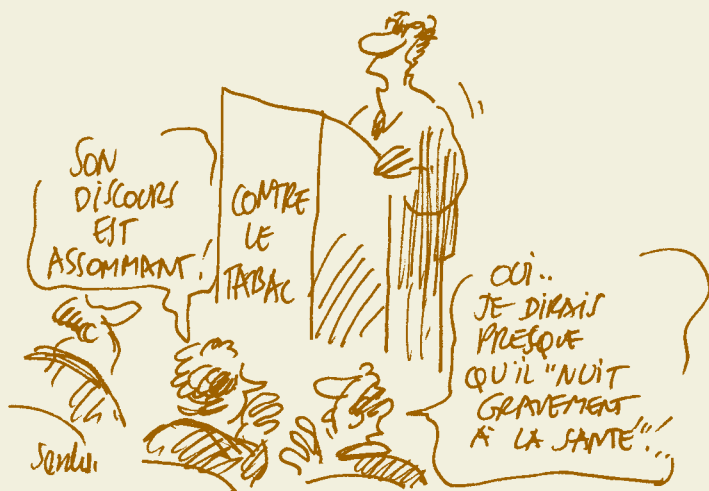 SON
DISCOURS
EST
ASSOMMANT!
CONTRE
LE
TABAC
OUI..
JE DIRAIS
PRESQUE
QU'IL "NUIT
GRAVEMENT
À LA SANTÉ"!